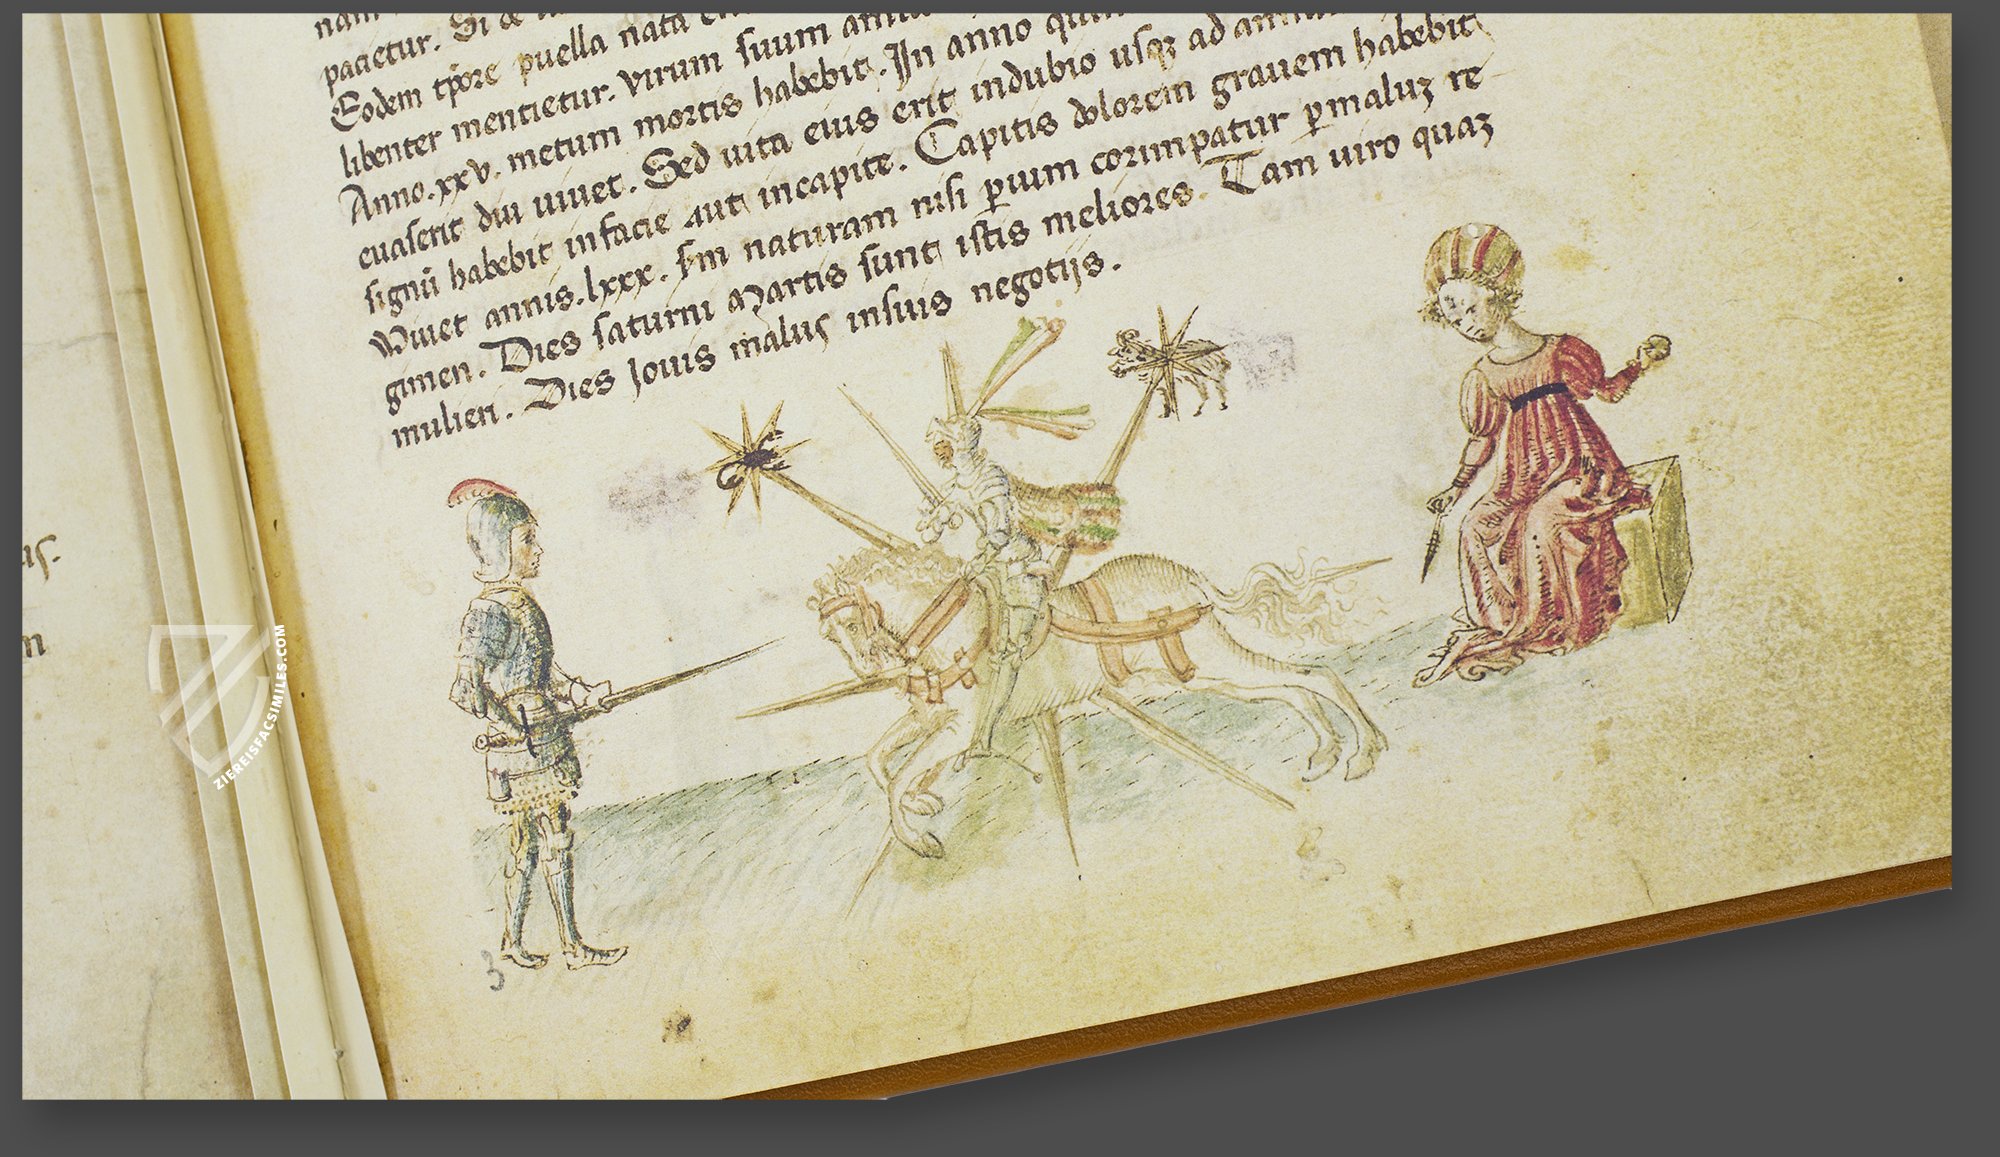 nam
pacietur. Si
Eodem tpōre puella nata
libenter mentietur. virum suum
Anno .xxv. metum mortis habebit. In anno
euaserit diu uiuet. Sed uita eius erit indubio usqȝ ad
signū habebit infacie aut incapite. Capitis dolorem grauem habebit
Viuet annis .lxxx. s̄m naturam nisi ꝑ ium corumpatur ꝑ maluȝ re
gimen. Dies saturni Martis sunt istis meliores. Tam uiro quaȝ
mulieri. Dies Iouis malus insuis negotijs.
us.
m
3
ZIEREISFACSIMILES.COM